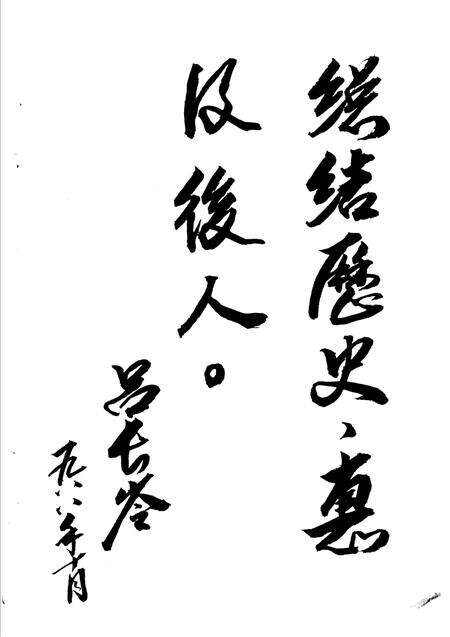 總結歷史、惠
及後人。
吕长岺
一九八八年十月